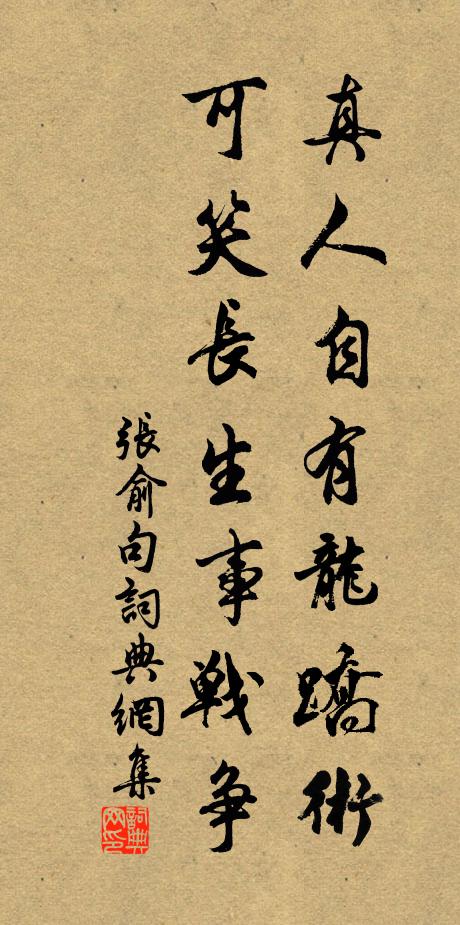 真人自有龍蹻術
可笑長生事戦争
張俞句詞典網集
詞典网印